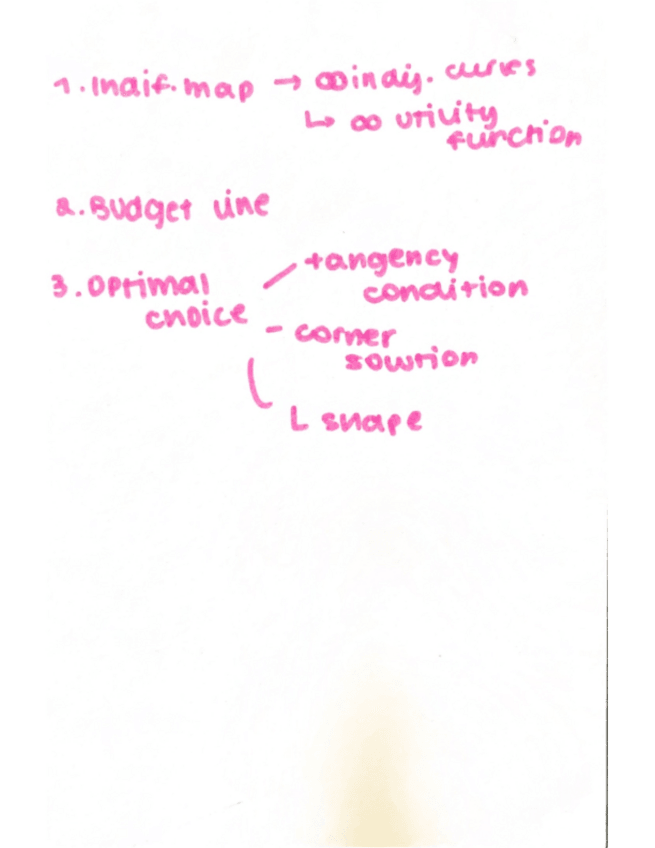 1. Indif. map → ∞ indif. curves
↳ ∞ utility
function
2. Budget line
3. Optimal
choice
tangency
condition
- corner
solution
L shape